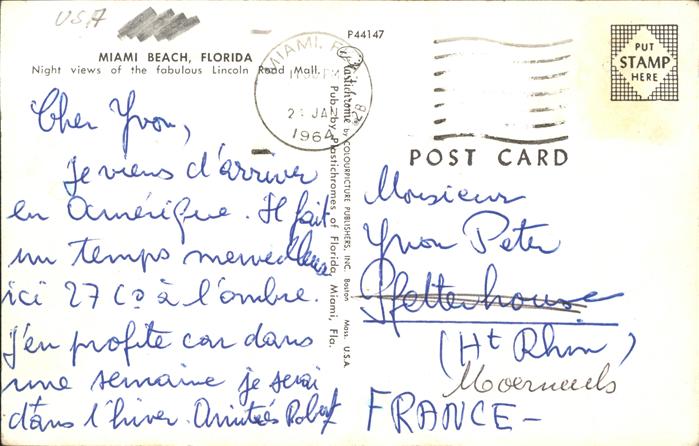 USA
P44147
MIAMI BEACH, FLORIDA
Night views of the fabulous Lincoln Road Mall.
MIAMI, FLA
JAN
1964
Plastichrome by COLOURPICTURE PUBLISHERS, INC. Boston Mass. U.S.A.
Pub. by Plastichromes of Florida, Miami, Fla.
PUT
STAMP
HERE
POST CARD
Cher Yvon,
Je viens d'arriver
en Amérique. Il fait
un temps merveilleux
ici 27 C° à l'ombre.
J'en profite car dans
une semaine je serai
dans l'hiver. Amitiés Robert
Monsieur
Yvon Peter
Pfetterhouse
(Ht Rhin)
FRANCE-